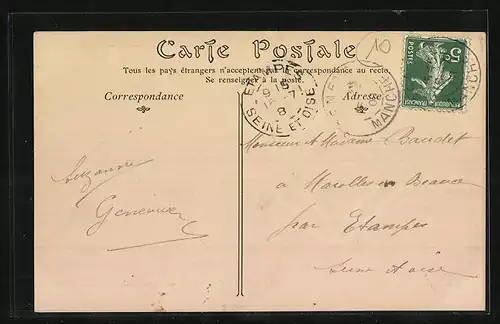 Carte Postale
10
Tous les pays étrangers n'acceptent pas la correspondance au recto.
Se renseigner à la poste.
Correspondance
Adresse
ÉTAMPES
SEINE ET OISE
MANCHE
MANCHE
5c
POSTES
Monsieur et Madame Baudet
à Marolles en Beauce
par Etampes
Seine et oise
Suzanne
Geneviève